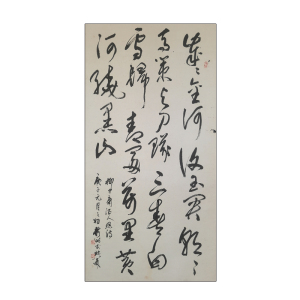 歲〻金河復玉關朝〻
馬策与刀環三春白
雪歸青冢萬里黄
河繞黑山
柳中庸征人怨詩